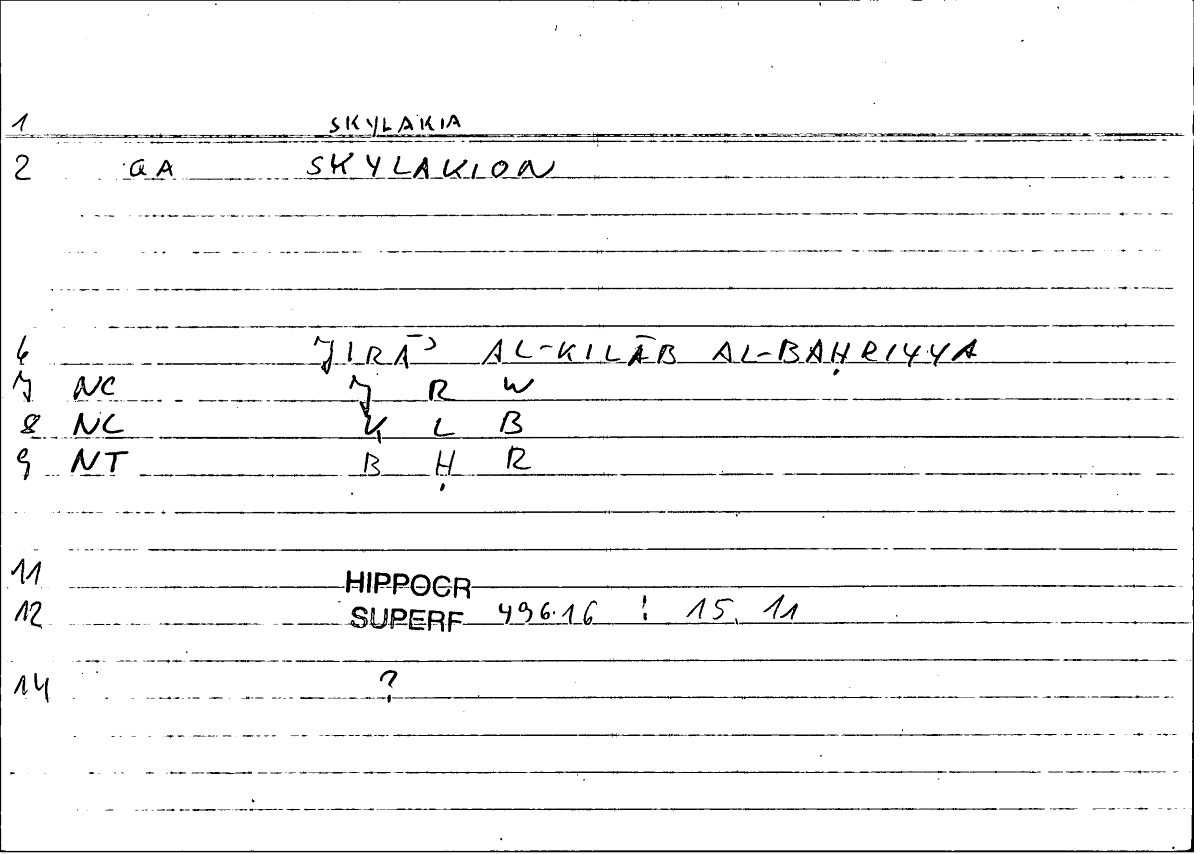 1 SKYLAKIA
2 QA SKYLAKION
6 JIRĀʾ AL-KILĀB AL-BAḤRIYYA
7 NC J R W
8 NC K L B
9 NT B Ḥ R
11 HIPPOCR
12 SUPERF 496.16 : 15, 11
14 ?